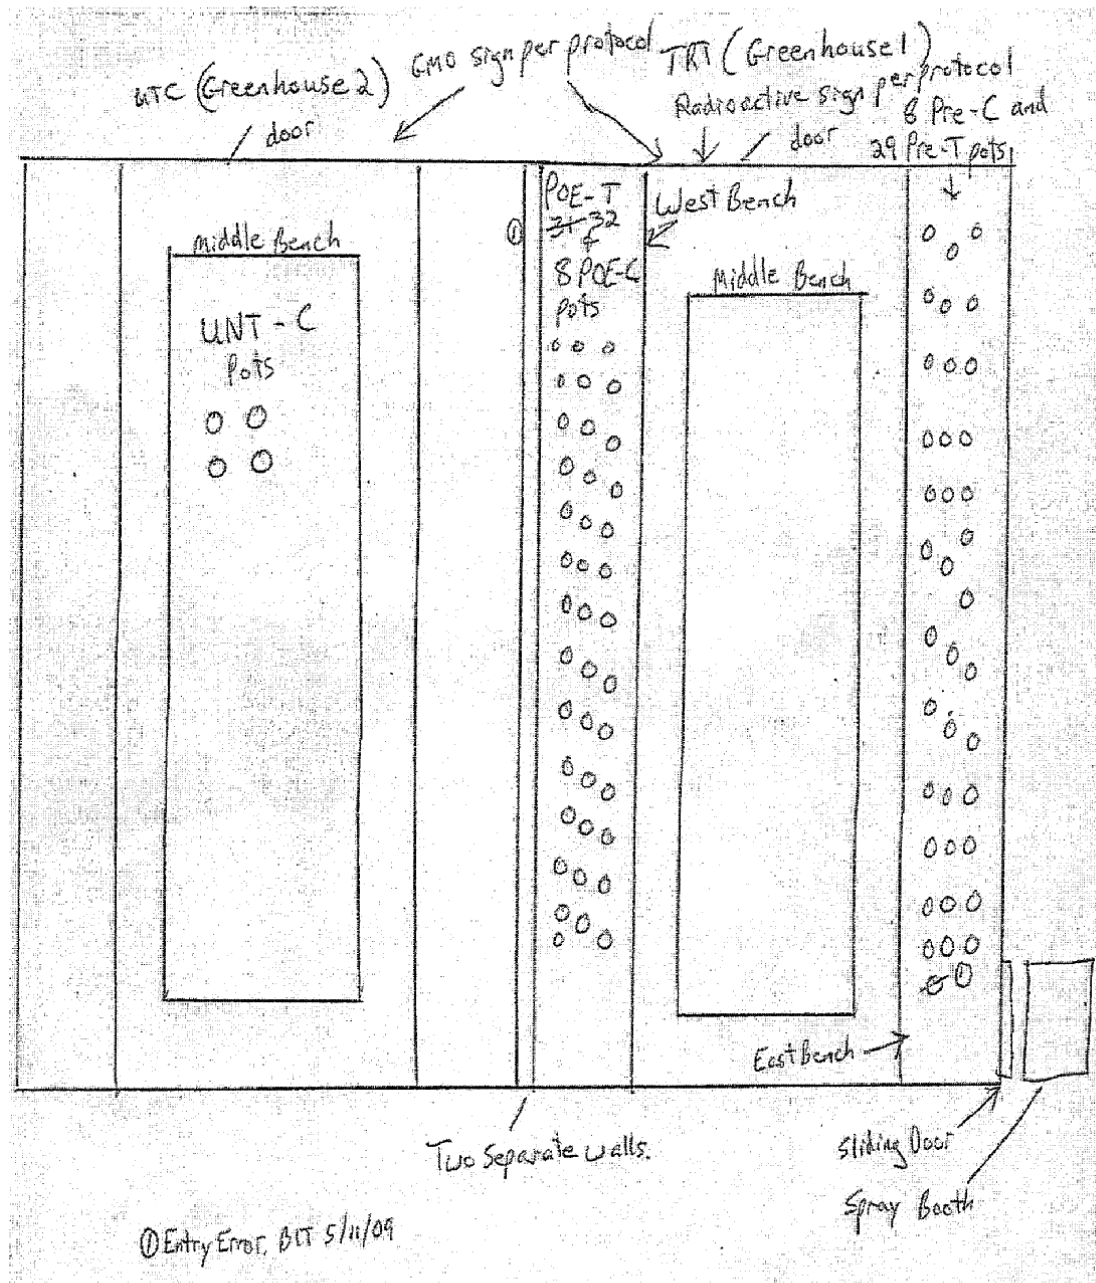 UTC (Greenhouse 2)
door
GMO sign per protocol
TRT (Greenhouse 1)
Radioactive sign per protocol
door
8 Pre-C and
29 Pre-T pots
Middle Bench
UNT-C
Pots
①
POE-T
31 32
+
8 POE-C
pots
West Bench
Middle Bench
East Bench
Two Separate walls.
Sliding Door
Spray Booth
① Entry Error. BTT 5/11/09